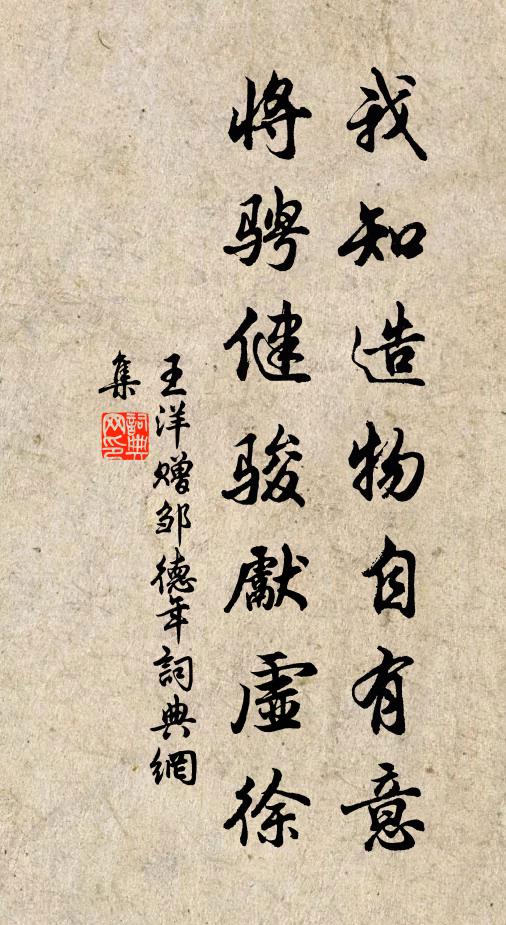 我知造物自有意
将骋健骏献虚徐
王洋赠邹德年詞典網
集
詞典网印